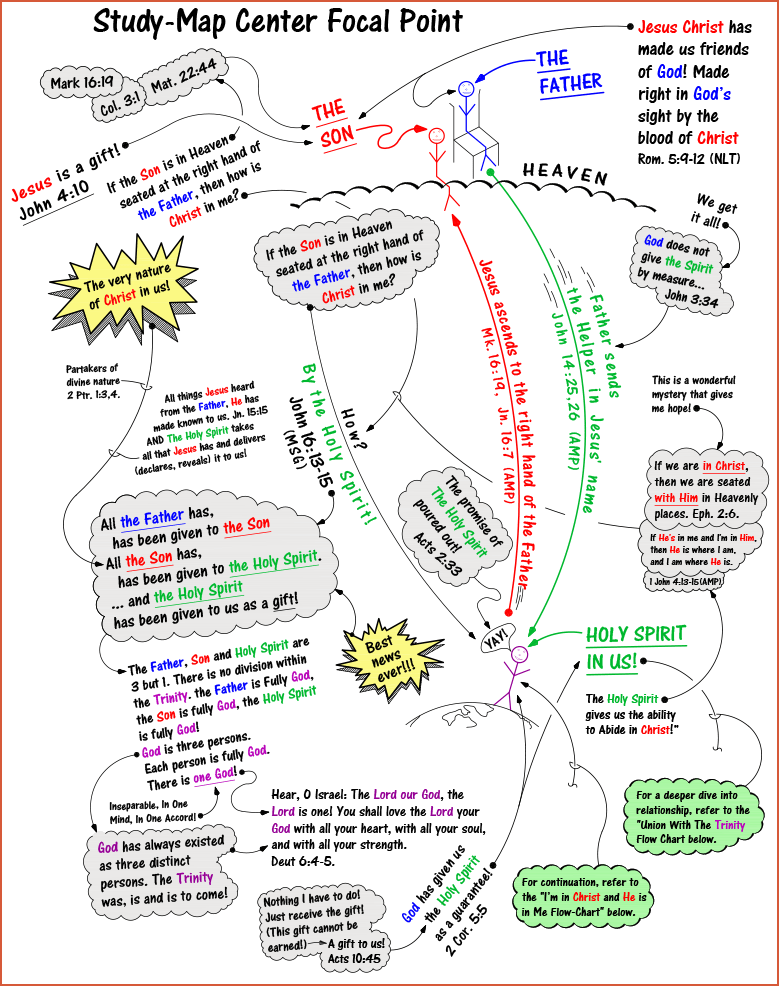 Study-Map Center Focal Point
Mark 16:19
Col. 3:1
Mat. 22:44
THE
SON
THE
FATHER
Jesus Christ has
made us friends
of God! Made
right in God's
sight by the
blood of Christ
Rom. 5:9-12 (NLT)
Jesus is a gift!
John 4:10
If the Son is in Heaven
seated at the right hand of
the Father, then how is
Christ in me?
HEAVEN
We get
it all!
God does not
give the Spirit
by measure...
John 3:34
The very nature
of Christ in us!
If the Son is in Heaven
seated at the right hand of
the Father, then how is
Christ in me?
Jesus ascends to the right hand of the Father
Mk.16:19, Jn. 16:7 (AMP)
Father sends
the Helper in Jesus' name
John 14:25,26 (AMP)
Partakers of
divine nature
2 Ptr. 1:3,4.
All things Jesus heard
from the Father, He has
made known to us. Jn. 15:15
AND The Holy Spirit takes
all that Jesus has and delivers
(declares, reveals) it to us!
How?
By the Holy Spirit!
John 16:13-15
(MSG)
This is a wonderful
mystery that gives
me hope!
If we are in Christ,
then we are seated
with Him in Heavenly
places. Eph. 2:6.
If He's in me and I'm in Him,
then He is where I am,
and I am where He is.
1 John 4:13-15(AMP)
The promise of
The Holy Spirit
poured out!
Acts 2:33
All the Father has,
has been given to the Son
All the Son has,
has been given to the Holy Spirit.
... and the Holy Spirit
has been given to us as a gift!
Best
news
ever!!!
YAY!
HOLY SPIRIT
IN US!
The Father, Son and Holy Spirit are
3 but 1. There is no division within
the Trinity. the Father is Fully God,
the Son is fully God, the Holy Spirit
is fully God!
God is three persons.
Each person is fully God.
There is one God!
The Holy Spirit
gives us the ability
to Abide in Christ!"
Inseparable, In One
Mind, In One Accord!
Hear, O Israel: The Lord our God, the
Lord is one! You shall love the Lord your
God with all your heart, with all your soul,
and with all your strength.
Deut 6:4-5.
For a deeper dive into
relationship, refer to the
"Union With The Trinity
Flow Chart below.
God has always existed
as three distinct
persons. The Trinity
was, is and is to come!
God has given us
the Holy Spirit
as a guarantee!
2 Cor. 5:5
For continuation, refer to
the "I'm in Christ and He is
in Me Flow-Chart" below.
Nothing I have to do!
Just receive the gift!
(This gift cannot be
earned!)
A gift to us!
Acts 10:45